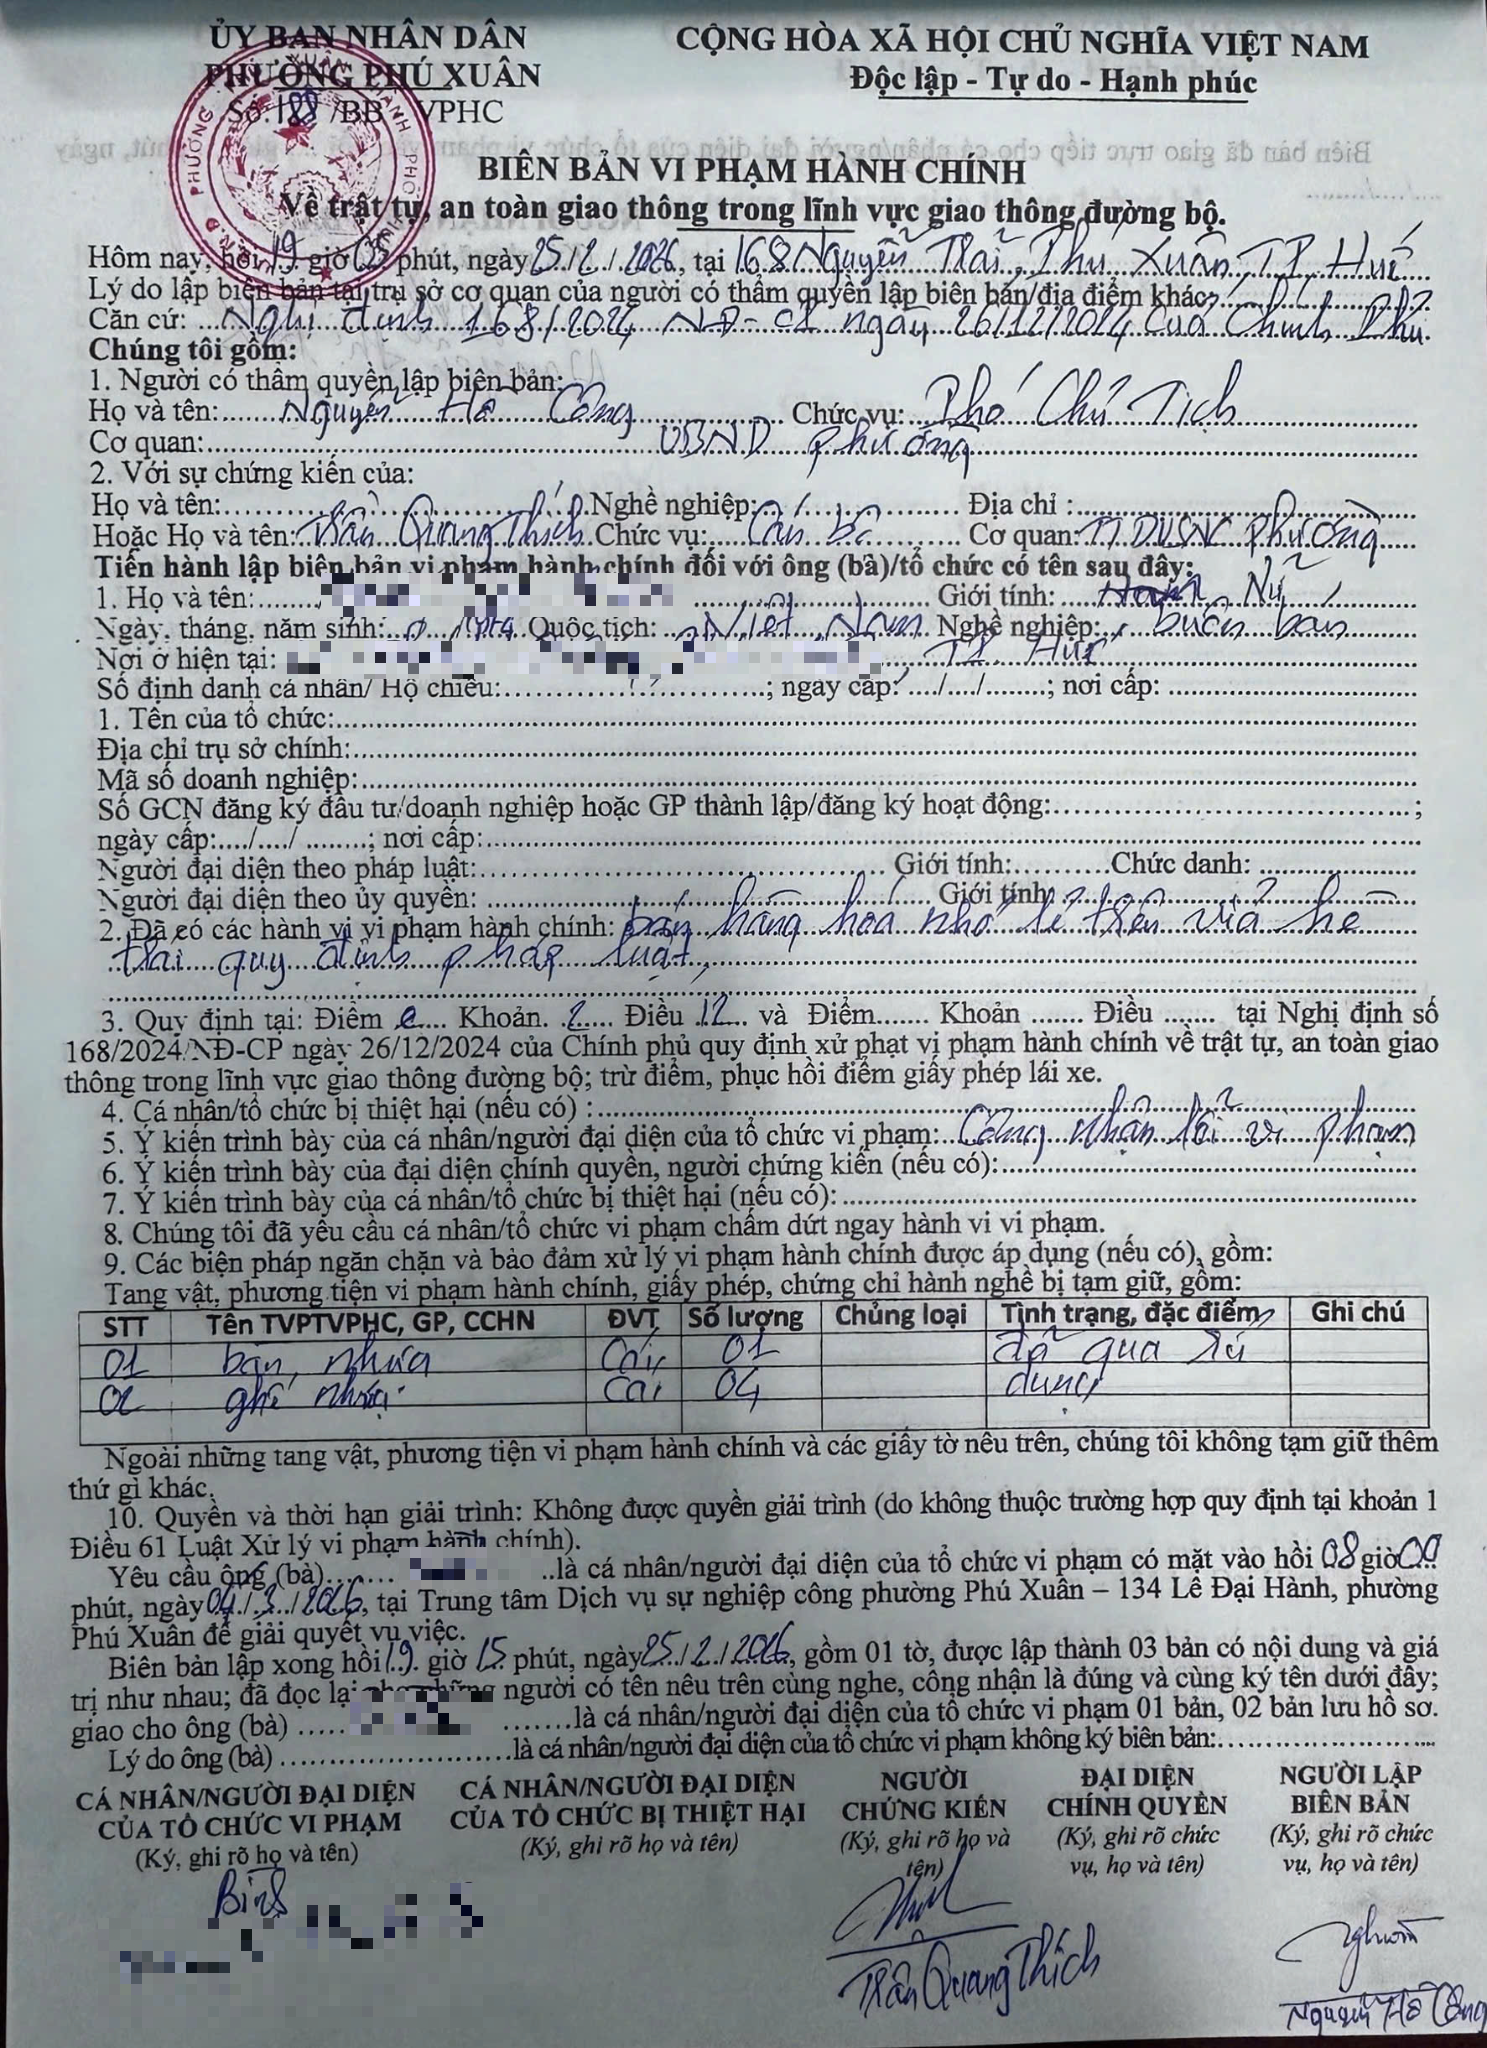 ỦY BAN NHÂN DÂN
PHƯỜNG PHÚ XUÂN
Số: 188 /BB - VPHC
CỘNG HÒA XÃ HỘI CHỦ NGHĨA VIỆT NAM
Độc lập - Tự do - Hạnh phúc
BIÊN BẢN VI PHẠM HÀNH CHÍNH
Về trật tự, an toàn giao thông trong lĩnh vực giao thông đường bộ.
Hôm nay, hồi 19 giờ 05 phút, ngày 25/2/2026, tại 168 Nguyễn Trãi, Phú Xuân, TP Huế
Lý do lập biên bản tại trụ sở cơ quan của người có thẩm quyền lập biên bản/địa điểm khác:
Căn cứ: Nghị định 168/2024 NĐ-CP ngày 26/12/2024 của Chính Phủ.
Chúng tôi gồm:
1. Người có thẩm quyền lập biên bản:
Họ và tên: Nguyễn Hồ Công Chức vụ: Phó Chủ Tịch
Cơ quan: UBND phường
2. Với sự chứng kiến của:
Họ và tên: Nghề nghiệp: Địa chỉ :
Hoặc Họ và tên: Trần Quang Thích Chức vụ: Cán bộ Cơ quan: TTDVSNC phường
Tiến hành lập biên bản vi phạm hành chính đối với ông (bà)/tổ chức có tên sau đây:
1. Họ và tên: Giới tính: Nữ
Ngày, tháng, năm sinh: Quốc tịch: Việt Nam Nghề nghiệp: buôn bán
Nơi ở hiện tại: , TP Huế
Số định danh cá nhân/ Hộ chiếu: ; ngày cấp: / / ; nơi cấp:
1. Tên của tổ chức:
Địa chỉ trụ sở chính:
Mã số doanh nghiệp:
Số GCN đăng ký đầu tư/doanh nghiệp hoặc GP thành lập/đăng ký hoạt động: ;
ngày cấp: / / ; nơi cấp:
Người đại diện theo pháp luật: Giới tính: Chức danh:
Người đại diện theo ủy quyền: Giới tính
2. Đã có các hành vi vi phạm hành chính: bán hàng hoá nhỏ lẻ trên vỉa hè
trái quy định pháp luật,
3. Quy định tại: Điểm e Khoản 2 Điều 12 và Điểm Khoản Điều tại Nghị định số
168/2024/NĐ-CP ngày 26/12/2024 của Chính phủ quy định xử phạt vi phạm hành chính về trật tự, an toàn giao
thông trong lĩnh vực giao thông đường bộ; trừ điểm, phục hồi điểm giấy phép lái xe.
4. Cá nhân/tổ chức bị thiệt hại (nếu có) :
5. Ý kiến trình bày của cá nhân/người đại diện của tổ chức vi phạm: Công nhận lỗi vi phạm
6. Ý kiến trình bày của đại diện chính quyền, người chứng kiến (nếu có):
7. Ý kiến trình bày của cá nhân/tổ chức bị thiệt hại (nếu có):
8. Chúng tôi đã yêu cầu cá nhân/tổ chức vi phạm chấm dứt ngay hành vi vi phạm.
9. Các biện pháp ngăn chặn và bảo đảm xử lý vi phạm hành chính được áp dụng (nếu có), gồm:
Tang vật, phương tiện vi phạm hành chính, giấy phép, chứng chỉ hành nghề bị tạm giữ, gồm:
STT Tên TVPTVPHC, GP, CCHN ĐVT Số lượng Chủng loại Tình trạng, đặc điểm Ghi chú
01 bàn nhựa Cái 01 đã qua sử
02 ghế nhựa Cái 04 dụng
Ngoài những tang vật, phương tiện vi phạm hành chính và các giấy tờ nêu trên, chúng tôi không tạm giữ thêm
thứ gì khác.
10. Quyền và thời hạn giải trình: Không được quyền giải trình (do không thuộc trường hợp quy định tại khoản 1
Điều 61 Luật Xử lý vi phạm hành chính).
Yêu cầu ông (bà) là cá nhân/người đại diện của tổ chức vi phạm có mặt vào hồi 08 giờ 00
phút, ngày 04/3/2026, tại Trung tâm Dịch vụ sự nghiệp công phường Phú Xuân – 134 Lê Đại Hành, phường
Phú Xuân để giải quyết vụ việc.
Biên bản lập xong hồi 19 giờ 15 phút, ngày 25/2/2026, gồm 01 tờ, được lập thành 03 bản có nội dung và giá
trị như nhau; đã đọc lại cho những người có tên nêu trên cùng nghe, công nhận là đúng và cùng ký tên dưới đây;
giao cho ông (bà) là cá nhân/người đại diện của tổ chức vi phạm 01 bản, 02 bản lưu hồ sơ.
Lý do ông (bà) là cá nhân/người đại diện của tổ chức vi phạm không ký biên bản:
CÁ NHÂN/NGƯỜI ĐẠI DIỆN
CỦA TỔ CHỨC VI PHẠM
(Ký, ghi rõ họ và tên)
CÁ NHÂN/NGƯỜI ĐẠI DIỆN
CỦA TỔ CHỨC BỊ THIỆT HẠI
(Ký, ghi rõ họ và tên)
NGƯỜI
CHỨNG KIẾN
(Ký, ghi rõ họ và
tên)
Trần Quang Thích
ĐẠI DIỆN
CHÍNH QUYỀN
(Ký, ghi rõ chức
vụ, họ và tên)
NGƯỜI LẬP
BIÊN BẢN
(Ký, ghi rõ chức
vụ, họ và tên)
Nguyễn Hồ Công